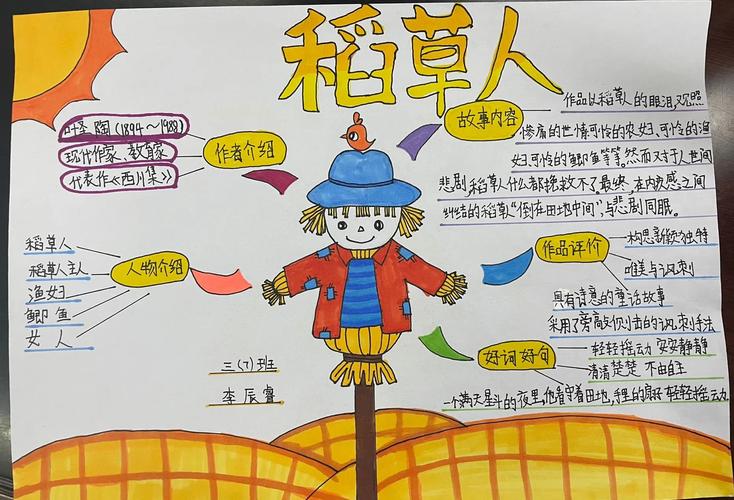 稻草人
作者介绍
叶圣陶(1894~1988)
现代作家、教育家
代表作《西川集》
人物介绍
稻草人
稻草人主人
渔妇
鲫鱼
女人
三(7)班
李辰睿
故事内容
作品以稻草人的眼泪,观照
惨痛的世情可怜的农妇、可怜的渔
妇、可怜的鲫鱼等等。然而对于人世间
悲剧,稻草人什么都挽救不了。最终,在内疚感之间
纠结的稻草"倒在田地中间",与悲剧同眠。
作品评价
构思新颖独特
唯美与讽刺
具有诗意的童话故事
采用了旁敲侧击的讽刺手法
好词好句
轻轻摇动 安安静静
清清楚楚 不由自主
一个满天星斗的夜里,他看守着田地,手里的扇子轻轻摇动